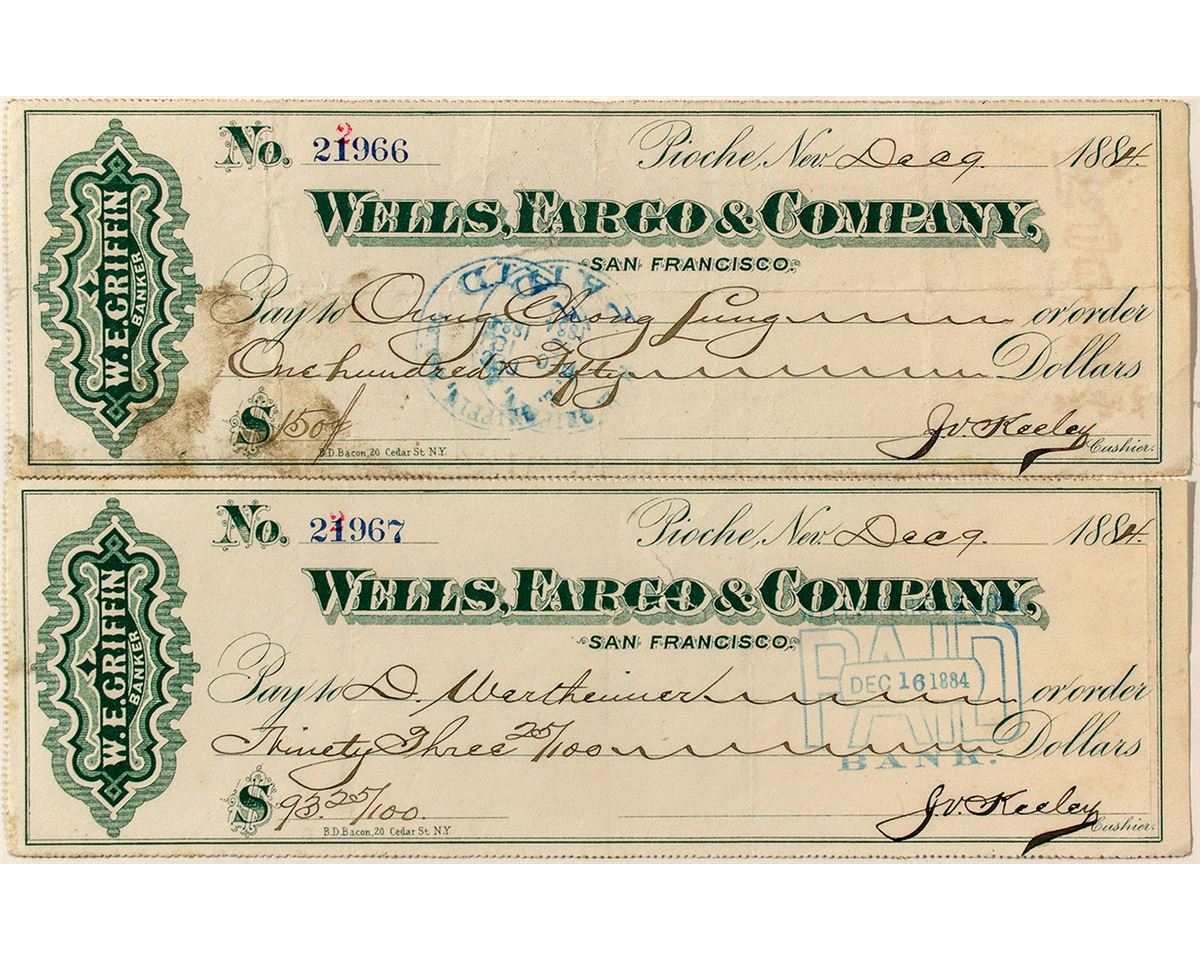 W. E. GRIFFIN
BANKER
No. 21966
2
Pioche, Nev. Dec 9. 1884.
WELLS, FARGO & COMPANY,
SAN FRANCISCO.
Pay to Chong Lung or order
One hundred & Fifty Dollars
$ 150/
B.D. Bacon, 20 Cedar St. N.Y.
J.V. Keeley
Cashier.
W. E. GRIFFIN
BANKER
No. 21967
2
Pioche, Nev. Dec 9. 1884.
WELLS, FARGO & COMPANY,
SAN FRANCISCO.
PAID
DEC 16 1884
BANK.
Pay to D. Wertheimer or order
Ninety Three 25/100 Dollars
$ 93.25/100.
B.D. Bacon, 20 Cedar St. N.Y.
J.V. Keeley
Cashier.